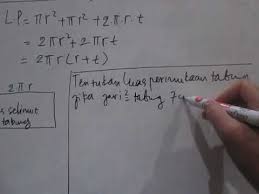 LP = πr² + πr² + 2πr.t
= 2πr² + 2πrt
= 2πr(r+t)
2πr
selimut
tabung
Tentukan luas permukaan tabung
jika jari² tabung 7c